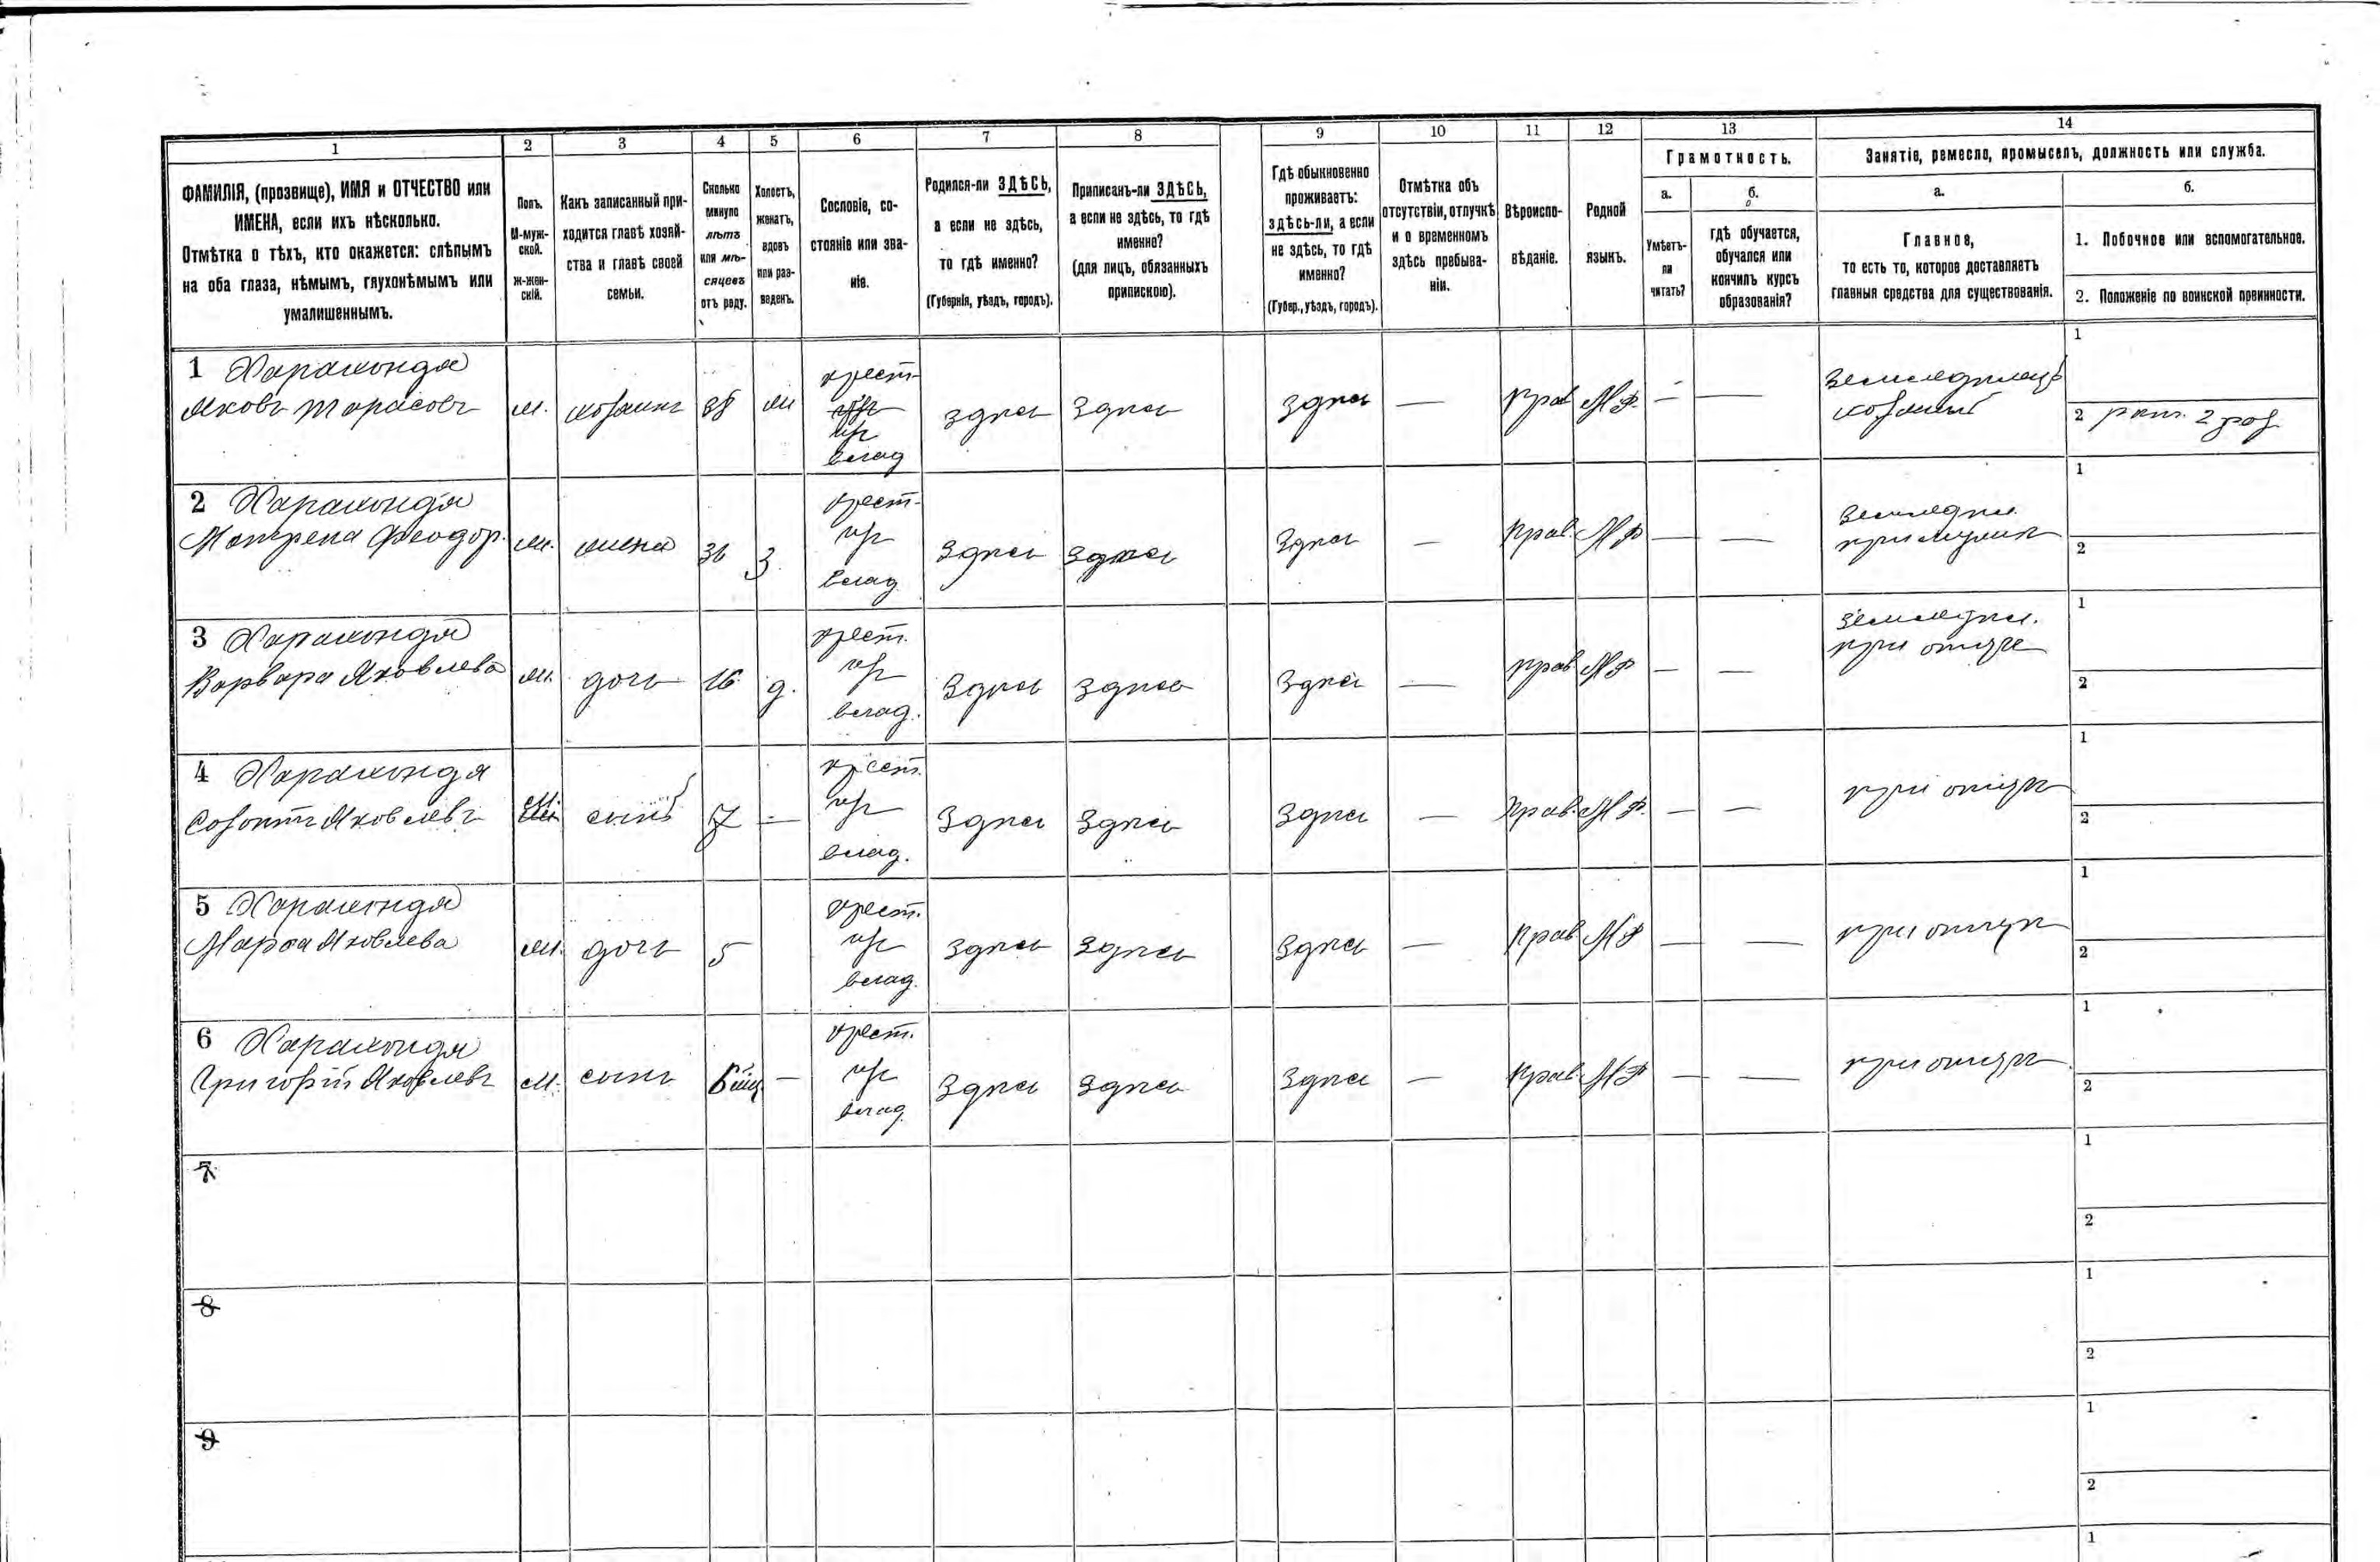 1
2
3
4
5
6
7
8
9
10
11
12
13
14
ФАМИЛІЯ, (прозвище), ИМЯ и ОТЧЕСТВО или
ИМЕНА, если ихъ нѣсколько.
Отмѣтка о тѣхъ, кто окажется: слѣпымъ
на оба глаза, нѣмымъ, глухонѣмымъ или
умалишеннымъ.
Полъ.
М-муж-
ской.
Ж-жен-
скій.
Какъ записанный при-
ходится главѣ хозяй-
ства и главѣ своей
семьи.
Сколько
минуло
лѣтъ
или мѣ-
сяцевъ
отъ роду.
Холостъ,
женатъ,
вдовъ
или раз-
веденъ.
Сословіе, со-
стояніе или зва-
ніе.
Родился-ли ЗДѢСЬ,
а если не здѣсь,
то гдѣ именно?
(Губернія, уѣздъ, городъ).
Приписанъ-ли ЗДѢСЬ,
а если не здѣсь, то гдѣ
именно?
(для лицъ, обязанныхъ
припискою).
Гдѣ обыкновенно
проживаетъ:
здѣсь-ли, а если
не здѣсь, то гдѣ
именно?
(Губер., уѣздъ, городъ).
Отмѣтка объ
отсутствіи, отлучкѣ
и о временномъ
здѣсь пребыва-
ніи.
Вѣроиспо-
вѣданіе.
Родной
языкъ.
Грамотность.
а.
Умѣетъ-
ли
читать?
б.
гдѣ обучается,
обучался или
кончилъ курсъ
образованія?
Занятіе, ремесло, промыселъ, должность или служба.
а.
Главное,
то есть то, которое доставляетъ
главныя средства для существованія.
б.
1. Побочное или вспомогательное.
2. Положеніе по воинской повинности.
1 Харахонда
Яковъ Тарасовъ
м.
хозяинъ
38
ж
крест.
влад
здѣсь
здѣсь
здѣсь
—
прав
М.Р.
—
—
земледѣлецъ
хозяинъ
1
2 рат. 2 раз.
2 Харахонда
Матрена Феодор.
ж.
жена
36
З.
крест.
влад
здѣсь
здѣсь
здѣсь
—
прав.
М Р
—
—
земледѣл.
при мужѣ
1
2
3 Харахонда
Варвара Яковлева
ж.
дочь
16
д.
крест.
влад.
здѣсь
здѣсь
здѣсь
—
прав
М Р
—
—
земледѣл.
при отцѣ
1
2
4 Харахонда
Яковлевъ
м.
сынъ
7
—
крест.
влад.
здѣсь
здѣсь
здѣсь
—
прав.
М Р.
—
—
при отцѣ
1
2
5 Харахонда
Марфа Яковлева
ж.
дочь
5
крест.
влад.
здѣсь
здѣсь
здѣсь
—
прав
М Р
—
—
при отцѣ
1
2
6 Харахонда
Григорій Яковлевъ
м.
сынъ
6 мѣс
—
крест.
влад.
здѣсь
здѣсь
здѣсь
—
прав.
М Р
—
—
при отцѣ
1
2
7
1
2
8
1
2
9
1
2
1